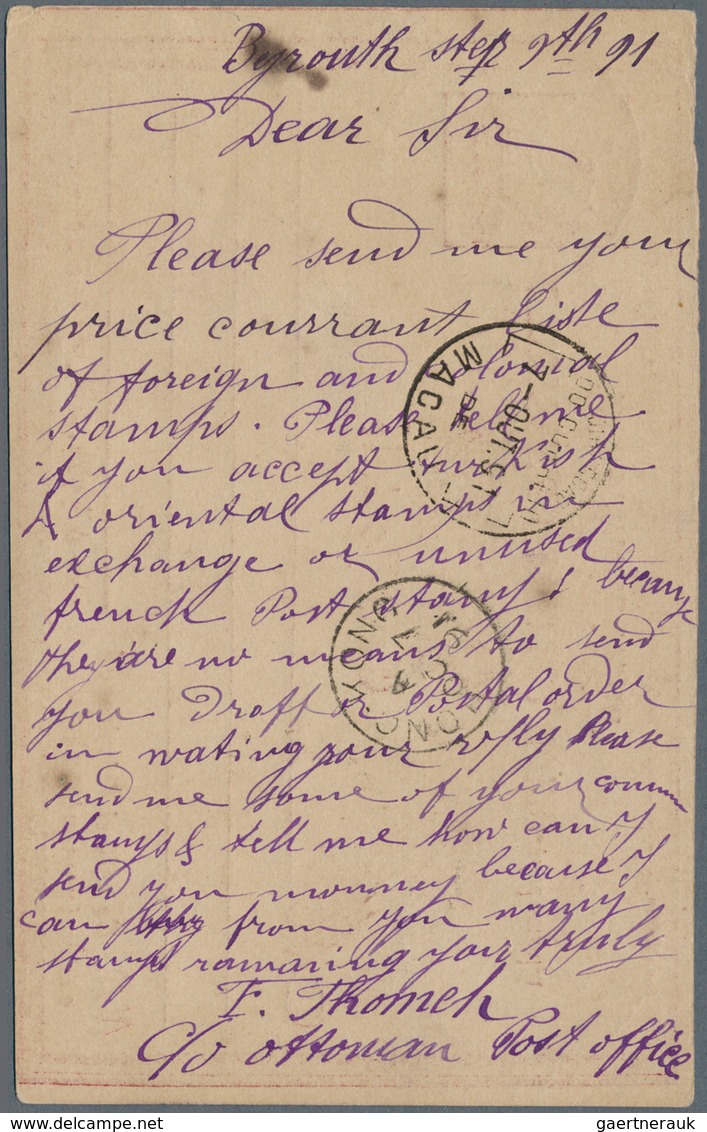 Byrouth step 9th 91
Dear Sir
Please send me your
price courrant liste
of foreign and colonial
stamps. Please tel me
if you accept turkish
& oriental stamps in
exchange or unused
french Post stamps because
they are no means to send
you draft or Postal order
in wating your reply Please
send me some of your common
stamps & tell me how can I
send you monney because I
can from you many
stamps remaning your truly
F. Thomeh
C/o ottoman Post office
MACAU
DE
7-OUT.91
HONG-KONG
OC 7
91
gaertnerauk